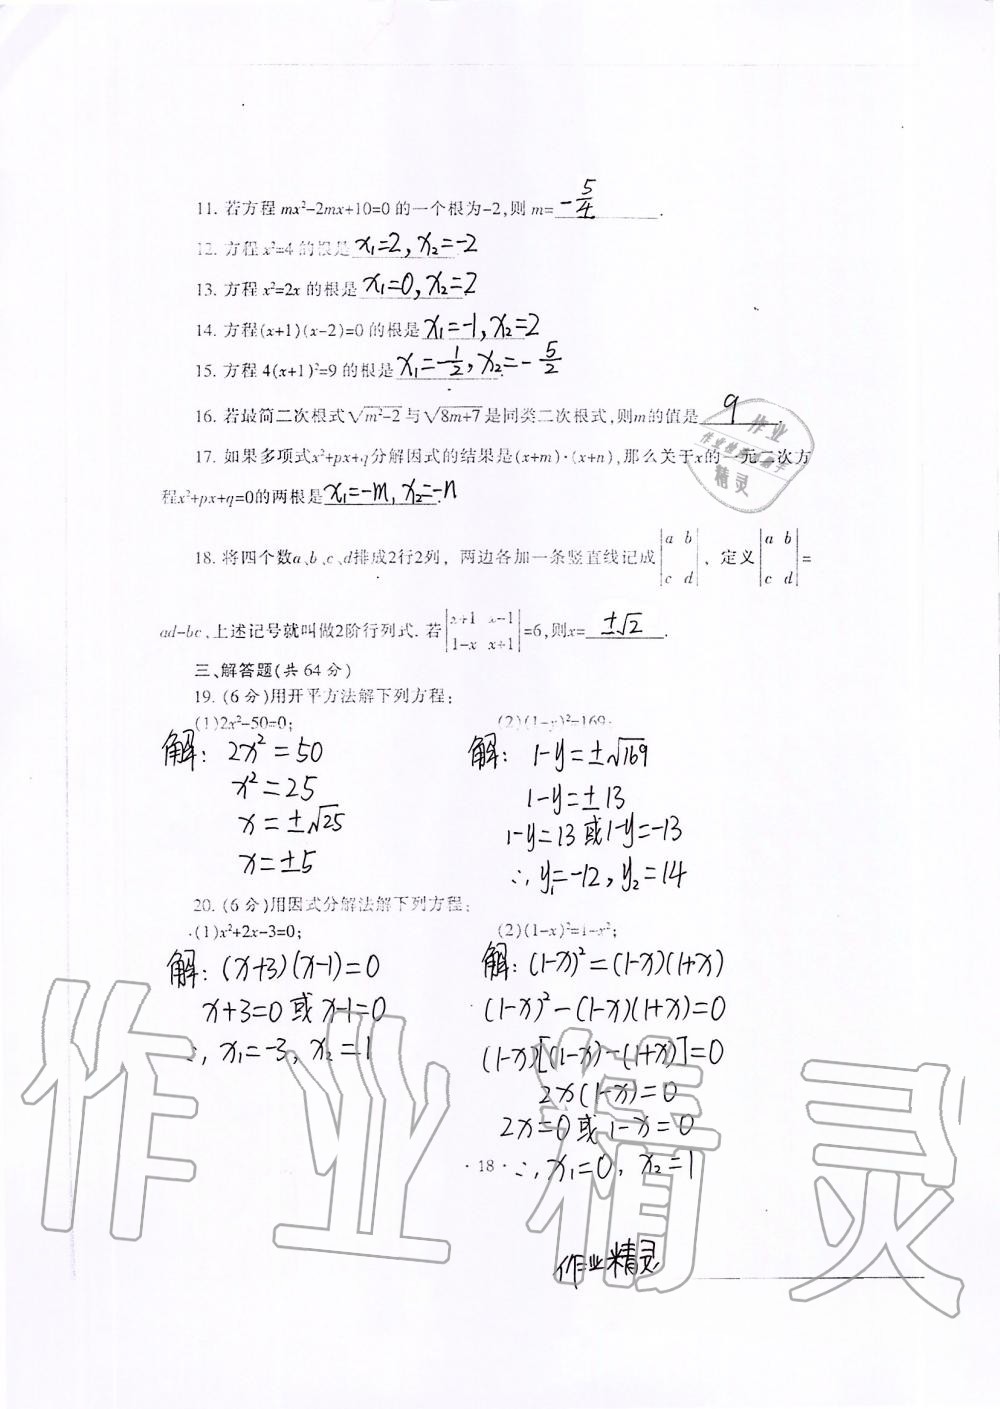 11. 若方程 mx²-2mx+10=0 的一个根为-2,则 m= -5/4 .
12. 方程 x²=4 的根是 x₁=2, x₂=-2
13. 方程 x²=2x 的根是 x₁=0, x₂=2
14. 方程(x+1)(x-2)=0 的根是 x₁=-1, x₂=2
15. 方程 4(x+1)²=9 的根是 x₁=-1/2, x₂=-5/2
16. 若最简二次根式√(m²-2) 与√(8m+7) 是同类二次根式,则m的值是 9 .
17. 如果多项式x²+px+q分解因式的结果是(x+m)·(x+n),那么关于x的一元二次方
程x²+px+q=0的两根是 x₁=-m, x₂=-n .
18. 将四个数a、b、c、d排成2行2列, 两边各加一条竖直线记成 |a b; c d| , 定义 |a b; c d| =
ad-bc,上述记号就叫做2阶行列式. 若 |x+1 x-1; 1-x x+1| =6,则x= ±√2 .
三、解答题(共 64 分)
19. (6 分)用开平方法解下列方程:
(1)2x²-50=0; (2)(1-y)²=169.
解: 2x²=50 解: 1-y=±√169
x²=25 1-y=±13
x=±√25 1-y=13 或 1-y=-13
x=±5 ∴ y₁=-12, y₂=14
20. (6 分)用因式分解法解下列方程:
(1)x²+2x-3=0; (2)(1-x)²=1-x²;
解: (x+3)(x-1)=0 解: (1-x)²=(1-x)(1+x)
x+3=0 或 x-1=0 (1-x)²-(1-x)(1+x)=0
∴ x₁=-3, x₂=1 (1-x)[(1-x)-(1+x)]=0
2x(1-x)=0
2x=0 或 1-x=0
· 18 · ∴ x₁=0, x₂=1
作业精灵
作业精灵
作业
精灵